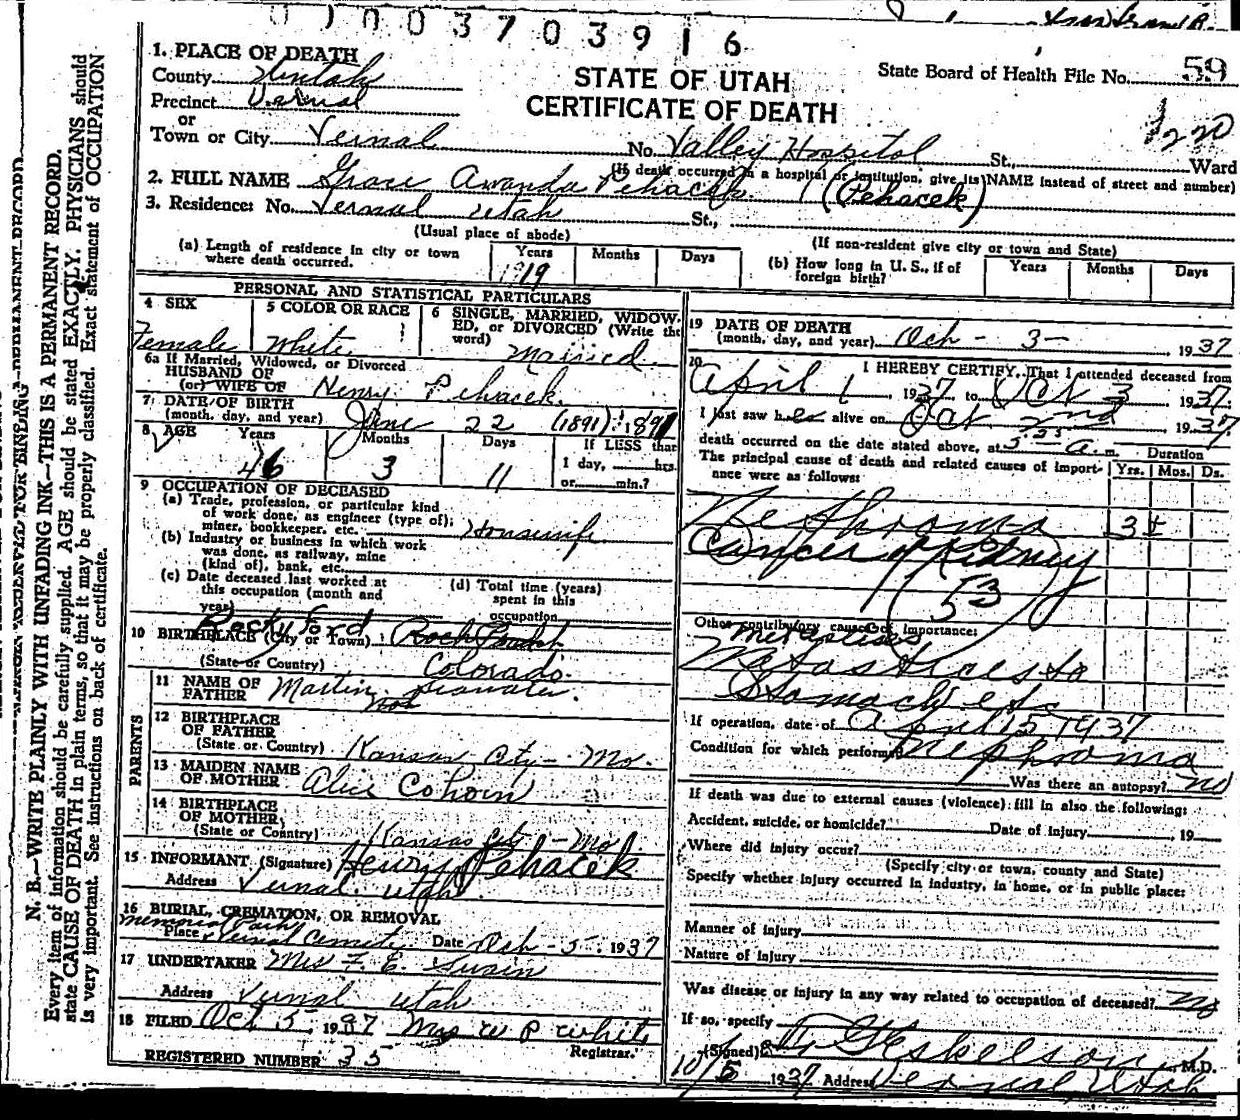 0 0 0 0 3 7 0 3 9 1 6
1. PLACE OF DEATH
County Uintah
Precinct Vernal
or
Town or City Vernal
STATE OF UTAH
CERTIFICATE OF DEATH
State Board of Health File No. 59
No. Valley Hospital St., Ward
(If death occurred in a hospital or institution, give its NAME instead of street and number)
2. FULL NAME Grace Awanda Pehacek (Pehacek)
3. Residence: No. Vernal Utah St.,
(Usual place of abode)
(If non-resident give city or town and State)
(a) Length of residence in city or town where death occurred. Years 1919 Months Days
(b) How long in U. S., if of foreign birth? Years Months Days
PERSONAL AND STATISTICAL PARTICULARS
4 SEX
Female
5 COLOR OR RACE
White
6 SINGLE, MARRIED, WIDOWED, or DIVORCED (Write the word)
Married
6a If Married, Widowed, or Divorced
HUSBAND OF
(or) WIFE OF Henry Pehacek
7 DATE OF BIRTH
(month, day, and year) June 22 (1891) 1891
8 AGE Years 46 Months 3 Days 11 If LESS than 1 day, hrs. or min.?
9 OCCUPATION OF DECEASED
(a) Trade, profession, or particular kind of work done, as engineer (type of); miner, bookkeeper, etc. Housewife
(b) Industry or business in which work was done, as railway, mine (kind of), bank, etc.
(c) Date deceased last worked at this occupation (month and year)
(d) Total time (years) spent in this occupation
Rocky Ford
10 BIRTHPLACE (City or Town)
(State or Country) Colorado
PARENTS
11 NAME OF FATHER Martin
12 BIRTHPLACE OF FATHER
(State or Country) Kansas City - Mo.
13 MAIDEN NAME OF MOTHER Alice
14 BIRTHPLACE OF MOTHER
(State or Country) Kansas City - Mo.
15 INFORMANT (Signature) Henry Pehacek
Address Vernal Utah
16 BURIAL, CREMATION, OR REMOVAL
Memorial Park
Place Vernal Cemetery Date Oct - 5 1937
17 UNDERTAKER Mrs F. E. Swain
Address Vernal Utah
18 FILED Oct 5, 1937 Mrs W P White
Registrar.
REGISTERED NUMBER 35
19 DATE OF DEATH
(month, day, and year) Oct - 3 - , 1937
20 I HEREBY CERTIFY, That I attended deceased from
April 1, 1937, to Oct 3, 1937.
I last saw her alive on Oct 2nd, 1937
death occurred on the date stated above, at 5:25 a. m.
Duration
The principal cause of death and related causes of importance were as follows:
Yrs. Mos. Ds.
Nephroma 3 ±
Cancer of Kidney
53
Other contributory causes of importance:
Metastises
Metastices to
Stomach etc
If operation, date of April 15 1937
Condition for which performed Nephroma
Was there an autopsy? no
If death was due to external causes (violence) fill in also the following:
Accident, suicide, or homicide? Date of injury 19
Where did injury occur?
(Specify city or town, county and State)
Specify whether injury occurred in industry, in home, or in public place:
Manner of injury
Nature of injury
Was disease or injury in any way related to occupation of deceased? No
If so, specify
(Signed) Eskelson M.D.
10/5 1937 Address Vernal, Utah
N. B.—WRITE PLAINLY WITH UNFADING INK—THIS IS A PERMANENT RECORD.
Every item of information should be carefully supplied. AGE should be stated EXACTLY. PHYSICIANS should
state CAUSE OF DEATH in plain terms, so that it may be properly classified. Exact statement of OCCUPATION
is very important. See instructions on back of certificate.